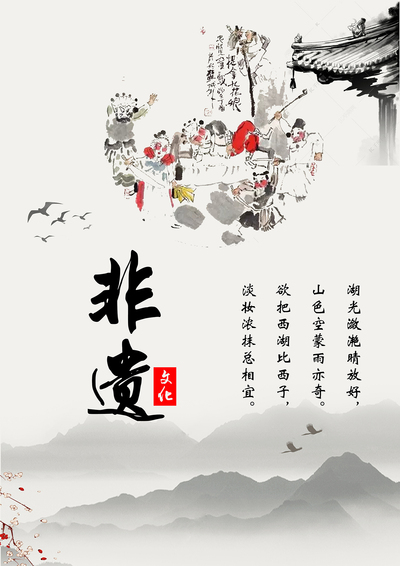 非遗
文化
湖光潋滟晴放好，
山色空蒙雨亦奇。
欲把西湖比西子，
淡妆浓抹总相宜。